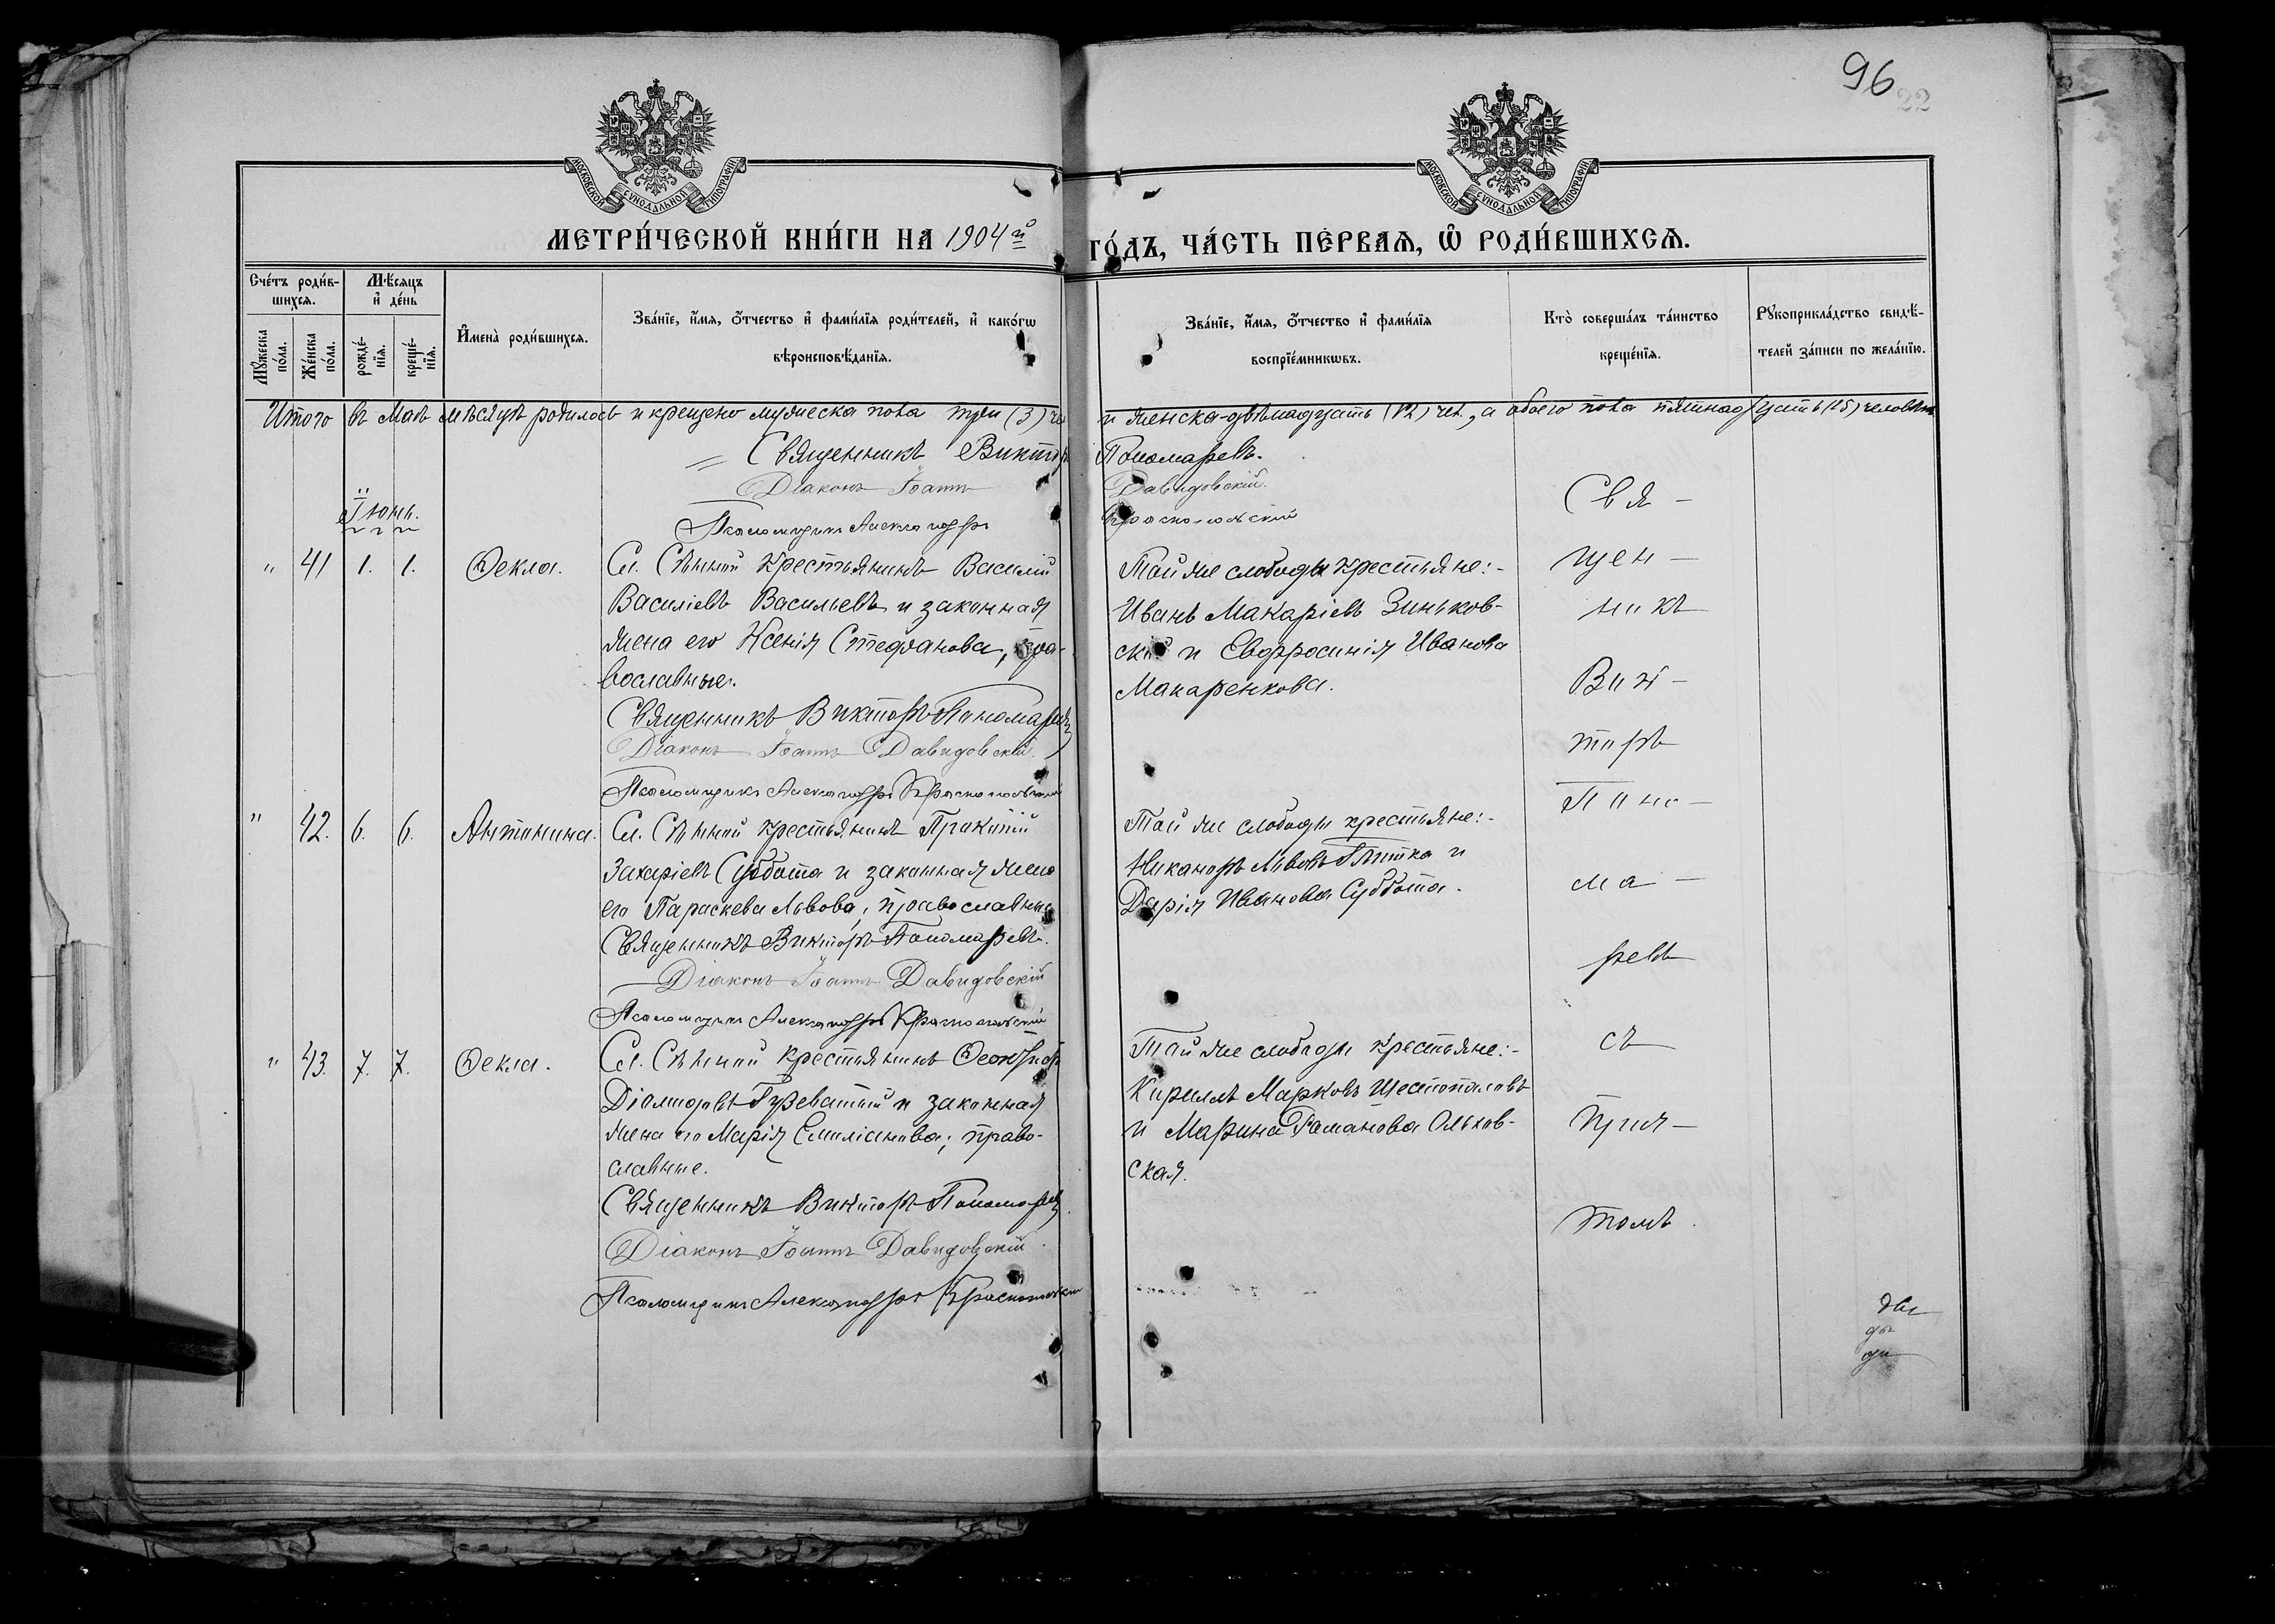 96
22
МОСКОВСКОЙ СѴНОДАЛЬНОЙ ТИПОГРАФІИ
МОСКОВСКОЙ СѴНОДАЛЬНОЙ ТИПОГРАФІИ
МЕТРИ́ЧЕСКОЙ КНИ́ГИ НА 1904й
ГО́ДЪ, ЧА́СТЬ ПЕ́РВАЯ, Ѡ РОДИ́ВШИХСЯ.
Сче́тъ роди́в-
шихся.
Мѣ́сяцъ
и де́нь
Мꙋ́жеска по́ла.
Же́нска по́ла.
рожде́-
нїя.
креще́-
нїя.
Имена̀ роди́вшихся.
Зва́нїе, и́мя, о́тчество и фами́лїя роди́телей, и како́гѡ
вѣроисповѣ́данїя.
Зва́нїе, и́мя, о́тчество и фами́лїя
воспрїе́мникѡвъ.
Кто̀ соверша́лъ та́инство
креще́нїя.
Рꙋкоприкла́дство свидѣ́-
телей за́писи по жела́нїю.
Итого въ Маѣ мѣсяцѣ родилось и крещено мужеска пола три (3) че
и женска-двѣнадцать (12) чел., а обоего пола пятнадцать (15) человѣкъ
Священникъ Викторъ Пономаревъ.
Діаконъ Іоаннъ Давидовскій.
Псаломщикъ Александръ Краснопольскій
Іюнь.
" 41 1. 1. Ѳекла.
Сл. Сѣнной крестьянинъ Василій
Василіевъ Васильевъ и законная
жена его Ксенія Стефанова, пра-
вославные.
Священникъ Викторъ Пономаревъ
Діаконъ Іоаннъ Давидовскій.
Псаломщикъ Александръ Краснопольскій
Той же слободы крестьяне:-
Иванъ Макаріевъ Зиньков-
скій и Евфросинія Иванова
Макаренкова.
" 42. 6. 6. Антонина.
Сл. Сѣнной крестьянинъ Прокопій
Захаріевъ Суббота и законная жена
его Параскева Львова; православные
Священникъ Викторъ Пономаревъ.
Діаконъ Іоаннъ Давидовскій
Псаломщикъ Александръ Краснопольскій
Той же слободы крестьяне:-
Никаноръ Львовъ и
Дарія Иванова Суббота.
" 43. 7. 7. Ѳекла.
Сл. Сѣнной крестьянинъ
Діомидовъ Гузеватый и законная
жена его Марія Емиліанова; право-
славные.
Священникъ Викторъ Пономаревъ.
Діаконъ Іоаннъ Давидовскій.
Псаломщикъ Александръ Краснопольскій
Той же слободы крестьяне:-
Кириллъ Марковъ Шестопаловъ
и Марина Романова Ольхов-
ская.
Свя-
щен-
никъ
Вик-
торъ
Поно-
ма-
ревъ
съ
прич-
томъ.